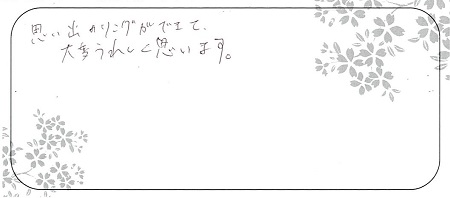 思い出のリングができて、
大変うれしく思います。